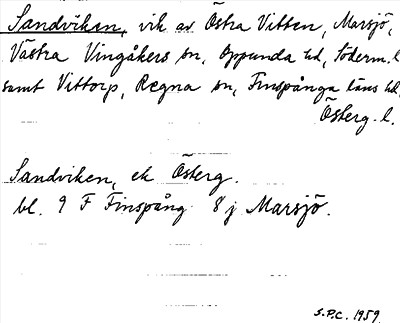 Sandviken, vik av Östra Vitten, Marsjö,
Västra Vingåkers sn, Oppunda hd, Söderm. l.
samt Vittorp, Regna sn, Finspånga läns hd,
Österg. l.
Sandviken, ek Österg.
bl. 9 F Finspång 8 j Marsjö.
S.P.C. 1959.